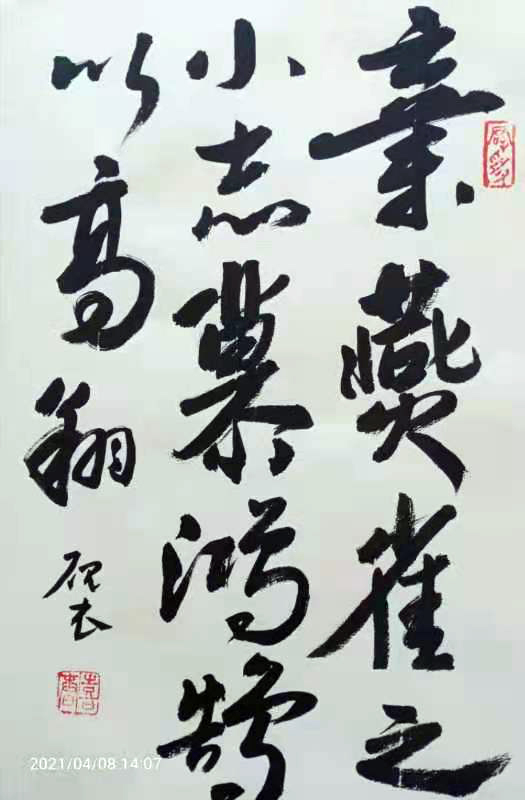 棄燕雀之
小志慕鴻鵠
以高翔
2021/04/08 14:07